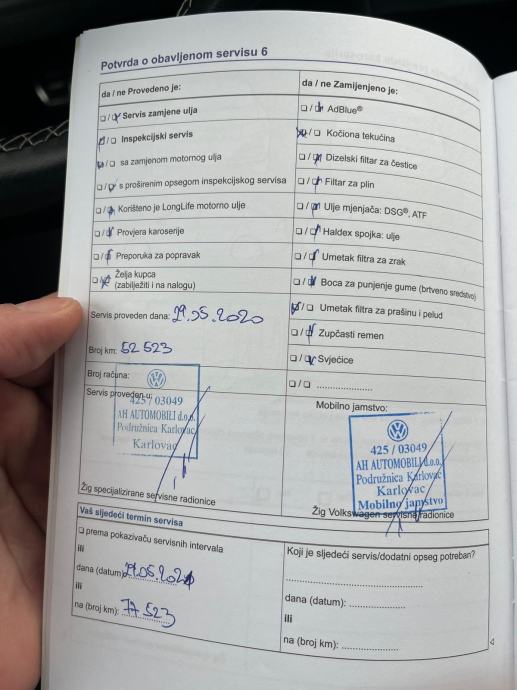 Potvrda o obavljenom servisu 6
da / ne Provedeno je:
❑ / ❑ Servis zamjene ulja
❑ / ❑ Inspekcijski servis
❑ / ❑ sa zamjenom motornog ulja
❑ / ❑ s proširenim opsegom inspekcijskog servisa
❑ / ❑ Korišteno je LongLife motorno ulje
❑ / ❑ Provjera karoserije
❑ / ❑ Preporuka za popravak
❑ / ❑ Želja kupca
(zabilježiti i na nalogu)
Servis proveden dana: 29.05.2020
Broj km: 52 523
Broj računa:
Servis proveden u:
425 / 03049
AH AUTOMOBILI d.o.o.
Podružnica Karlovac
Karlovac
Žig specijalizirane servisne radionice
da / ne Zamijenjeno je:
❑ / ❑ AdBlue®
❑ / ❑ Kočiona tekućina
❑ / ❑ Dizelski filtar za čestice
❑ / ❑ Filtar za plin
❑ / ❑ Ulje mjenjača: DSG®, ATF
❑ / ❑ Haldex spojka: ulje
❑ / ❑ Umetak filtra za zrak
❑ / ❑ Boca za punjenje gume (brtveno sredstvo)
❑ / ❑ Umetak filtra za prašinu i pelud
❑ / ❑ Zupčasti remen
❑ / ❑ Svjećice
❑ / ❑ ......................
Mobilno jamstvo:
425 / 03049
AH AUTOMOBILI d.o.o.
Podružnica Karlovac
Karlovac
Mobilno jamstvo
Žig Volkswagen servisne radionice
Vaš sljedeći termin servisa
❑ prema pokazivaču servisnih intervala
ili
dana (datum) 29.05.2021
ili
na (broj km): 77 523
Koji je sljedeći servis/dodatni opseg potreban?
......................................................
dana (datum): ......................
ili
na (broj km): ......................
4